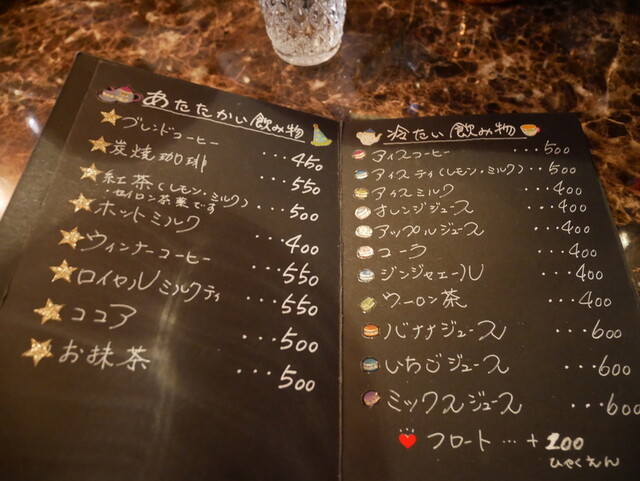 あたたかい飲み物
ブレンドコーヒー …450
炭焼珈琲 …550
紅茶(レモン・ミルク) …500
・セイロン茶葉です
ホットミルク …400
ウィンナーコーヒー …550
ロイヤルミルクティ …550
ココア …500
お抹茶 …500
冷たい飲み物
アイスコーヒー …500
アイスティ(レモン・ミルク) …500
アイスミルク …400
オレンジジュース …400
アップルジュース …400
コーラ …400
ジンジャエール …400
ウーロン茶 …400
バナナジュース …600
いちごジュース …600
ミックスジュース …600
フロート …+100
ひゃくえん